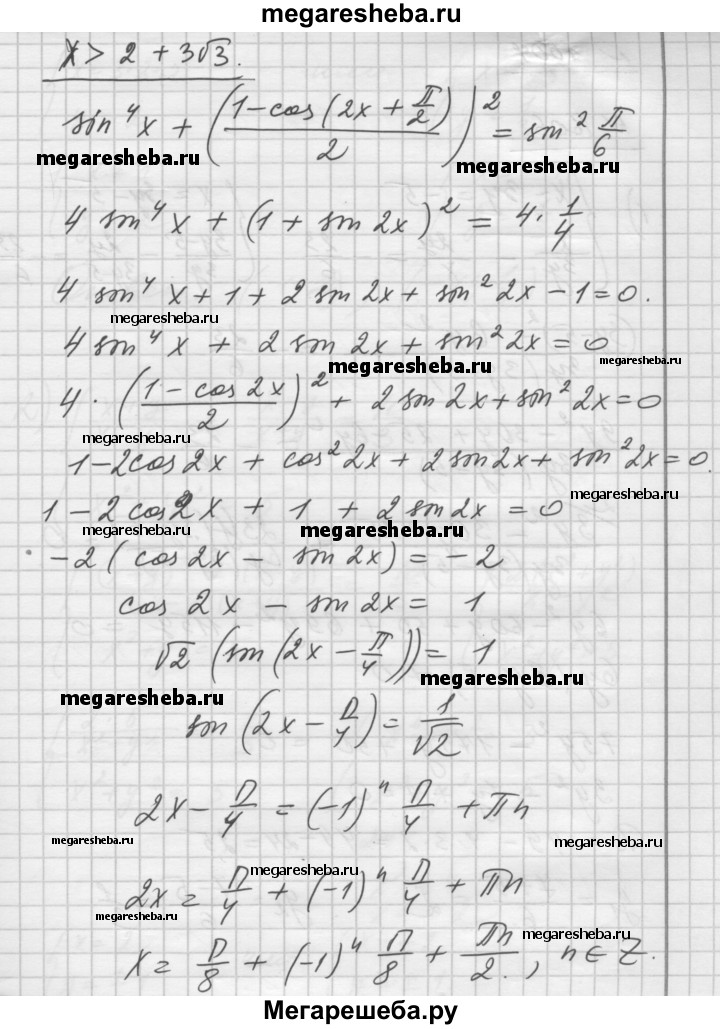 megaresheba.ru
x > 2 + 3√3.
sin⁴x + ((1-cos(2x + π/2))/2)² = sin² π/6
megaresheba.ru megaresheba.ru
4 sin⁴x + (1 + sin 2x)² = 4 · 1/4
4 sin⁴x + 1 + 2 sin 2x + sin² 2x - 1 = 0.
megaresheba.ru
4 sin⁴x + 2 sin 2x + sin² 2x = 0
megaresheba.ru
4 · ((1 - cos 2x)/2)² + 2 sin 2x + sin² 2x = 0
megaresheba.ru
1 - 2cos 2x + cos² 2x + 2 sin 2x + sin² 2x = 0.
megaresheba.ru
1 - 2 cos 2x + 1 + 2 sin 2x = 0
megaresheba.ru megaresheba.ru
-2(cos 2x - sin 2x) = -2
cos 2x - sin 2x = 1
√2 (sin(2x - π/4)) = 1
megaresheba.ru
megaresheba.ru
sin(2x - π/4) = 1/√2
2x - π/4 = (-1)ⁿ π/4 + πn
megaresheba.ru megaresheba.ru
megaresheba.ru
2x = π/4 + (-1)ⁿ π/4 + πn
megaresheba.ru
megaresheba.ru
x = π/8 + (-1)ⁿ π/8 + πn/2., n ∈ Z.
Мегарешеба.ру